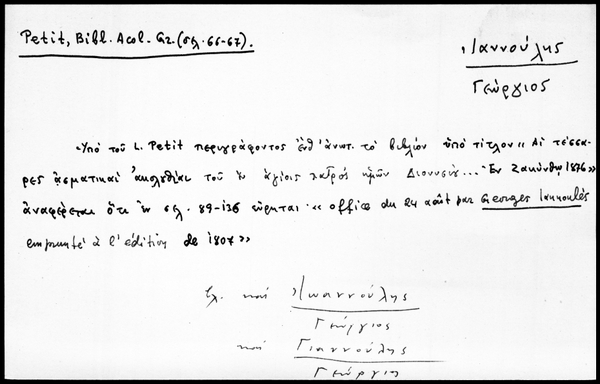 Petit, Bibl. Acol. Gr. (σελ. 66-67).
Ἰαννούλης
Γεώργιος
Ὑπὸ τοῦ L. Petit περιγράφοντος ἔνθ' ἀνωτ. τὸ βιβλίον ὑπὸ τίτλον «Αἱ τέσσα-
ρες ᾀσματικαὶ ἀκολουθίαι τοῦ ἐν ἁγίοις πατρὸς ἡμῶν Διονυσίου... Ἐν Ζακύνθῳ 1876»
ἀναφέρεται ὅτι ἐν σελ. 89-136 εὕρηται «office du 24 août par Georges Iannoulès
emprunté à l'édition de 1807»
βλ. καὶ Ἰωαννούλης
Γεώργιος
καὶ Γιαννούλης
Γεώργιος